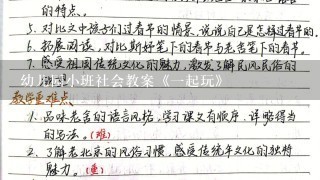 的特点。
5. 对比文中孩子们过春节的情景,说说自己是怎样过春节的。
6. 拓展阅读,对比斯好笔下的春节与老舍笔下的春节。
7. 感受祖国传统文化的魅力,激发了解民风民俗的
幼儿园小班社会教案《一起玩》
教学重难点
1. 品味老舍的语言风格,学习课文有顺序、详略得当
的写法。(难)
2. 了解老北京的风俗习惯,感受传统年文化的独特
魅力。(重)